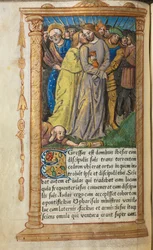 Gressus est dominus Jhesus cum
discipulis suis trans torrentem
cedron vbi erat ortus in quem in
troiuit ipse et discipuli eius. Sci
ebat autem et iudas qui tradebat eum locum
quia frequenter iesus conuenerat cum discipu
lis suis. Judas ergo cum accepisset cohortem
a pontificibus et phariseis ministros ve
nit cum laternis et facibus et armis. Jesus itaq
sciens omnia que ventura erant super eum